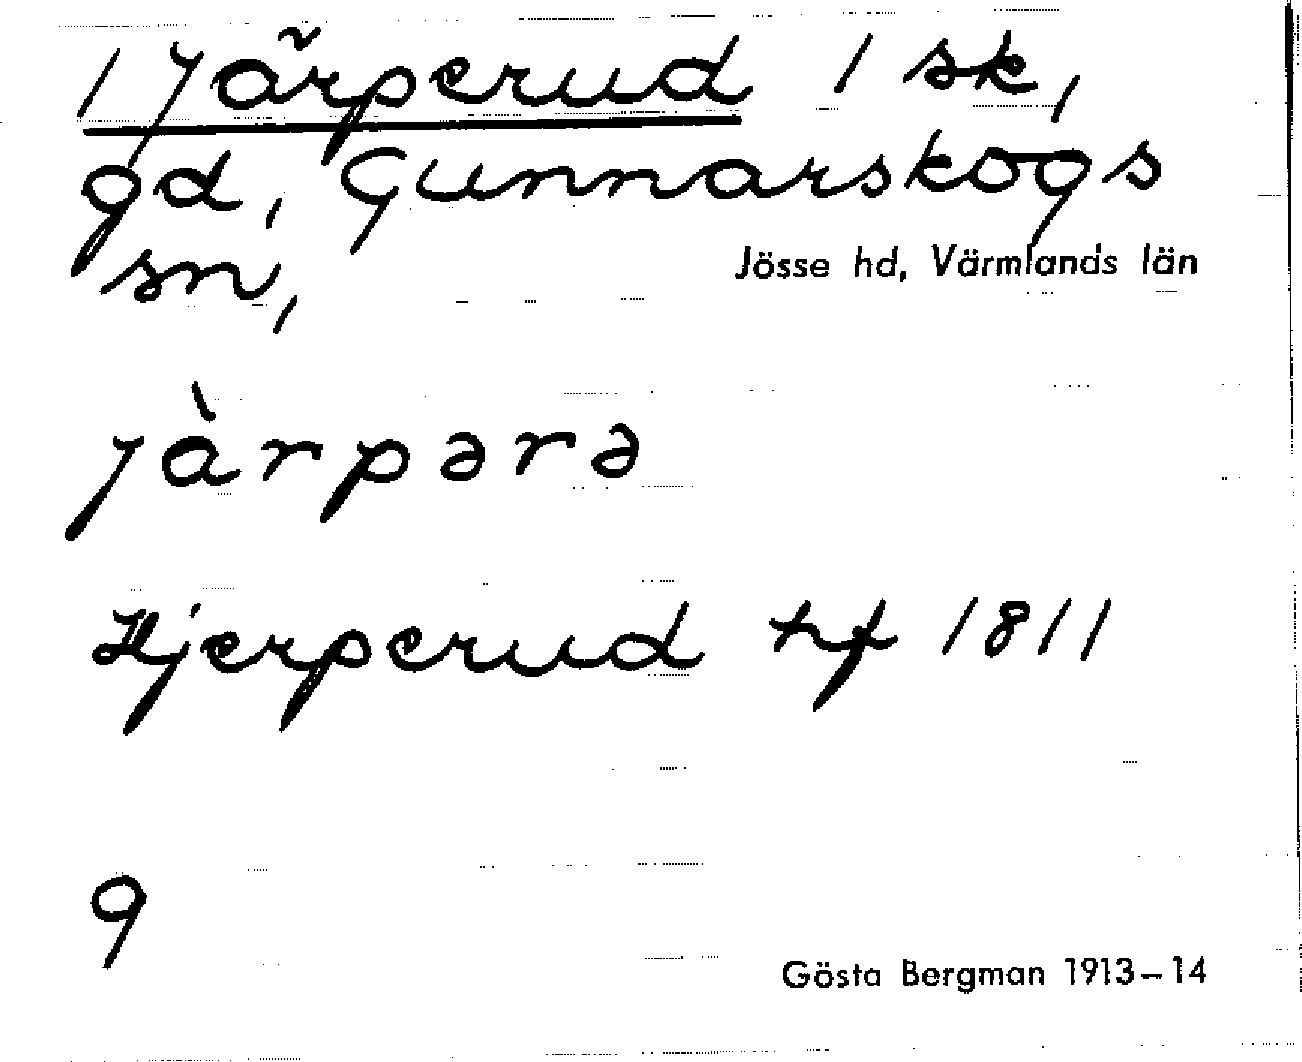 1 Järperud 1 sk,
gd, Gunnarskogs
sn,
Jösse hd, Värmlands län
jàrpərə
Hjerperud hf 1811
9
Gösta Bergman 1913–14